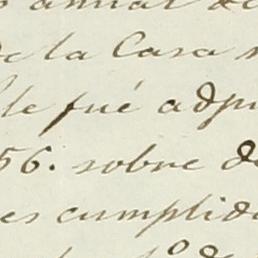 de la Casa
le fué adju
56. sobre de
es cumplida